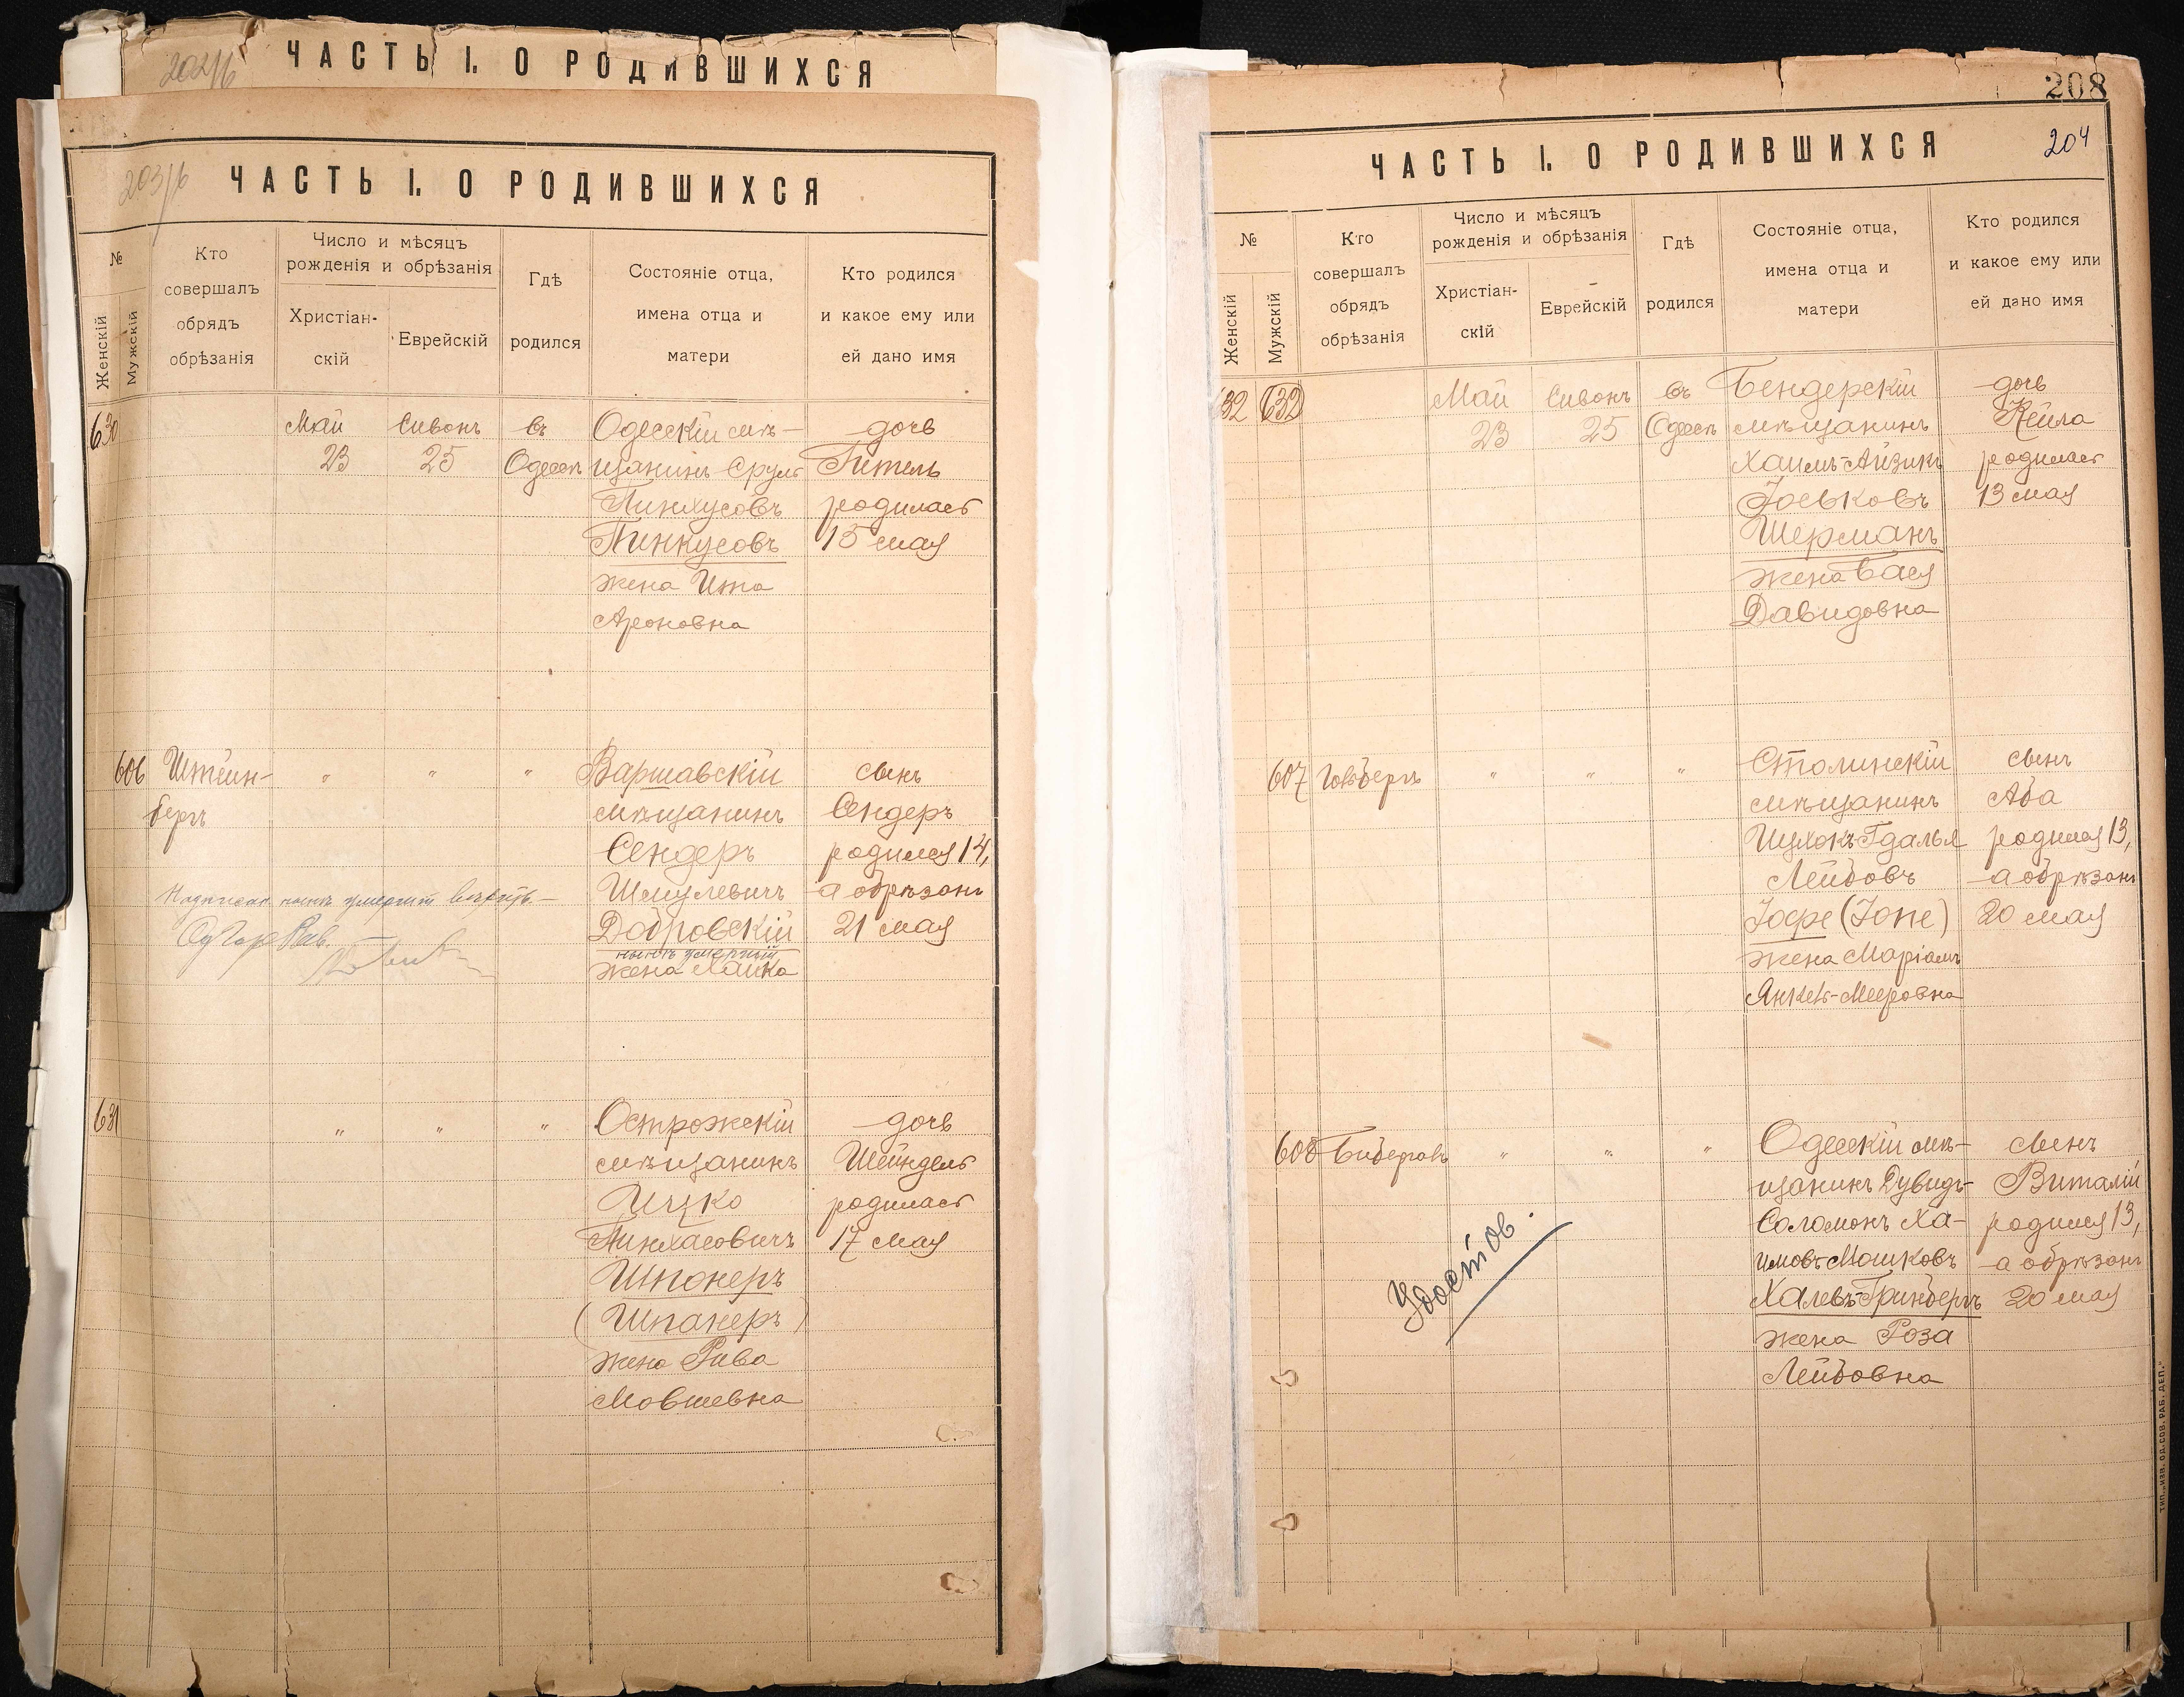 202/б
ЧАСТЬ I. О РОДИВШИХСЯ
203/б
ЧАСТЬ I. О РОДИВШИХСЯ
№
Женскій
Мужскій
Кто
совершалъ
обрядъ
обрѣзанія
Число и мѣсяцъ
рожденія и обрѣзанія
Христіан-
скій
Еврейскій
Гдѣ
родился
Состояніе отца,
имена отца и
матери
Кто родился
и какое ему или
ей дано имя
630 Май Сивонъ въ Одесскій мѣ- дочь
23 25 Одессѣ щанинъ Сруль Гитель
Пинхусовъ родилась
Пинкусовъ 15 мая
жена Ита
Ароновна
606 Штейн- " " " Варшавскій сынъ
бергъ мѣщанинъ Сендеръ
Сендеръ родился 14,
Шмулевичъ а обрѣзанъ
Надписан. нынѣ умершій вѣрить.—
Добровскій 21 мая
нынѣ умершій
жена Хайка
631 " " " Острожскій дочь
мѣщанинъ Шейндель
Ицко родилась
Пинхасовичъ 17 мая
Шпонеръ
(Шпанеръ)
жена Рива
Мовшевна
208
204
ЧАСТЬ I. О РОДИВШИХСЯ
№
Женскій
Мужскій
Кто
совершалъ
обрядъ
обрѣзанія
Число и мѣсяцъ
рожденія и обрѣзанія
Христіан-
скій
Еврейскій
Гдѣ
родился
Состояніе отца,
имена отца и
матери
Кто родился
и какое ему или
ей дано имя
632 632 Май Сивонъ въ Бендерскій дочь
23 25 Одессѣ мѣщанинъ Кейла
Хаимъ-Айзикъ родилась
Іоськовъ 13 мая
Шерманъ
жена Бася
Давидовна
607 Гольдбергъ " " " Столинскій сынъ
мѣщанинъ Аба
Ицхокъ-Гдалья родился 13,
Лейбовъ а обрѣзанъ
Іофе (Іопе) 20 мая
жена Маріамъ
Янкель-Мееровна
608 " " " Одесскій мѣ- сынъ
щанинъ Дувидъ- Виталій
Соломонъ Ха- родился 13,
имовъ-Мошковъ а обрѣзанъ
Халевъ-Гринбергъ 20 мая
жена Роза
Лейбовна
Удостов.
ТИП. „ИЗВ. ОД. СОВ. РАБ. ДЕП."